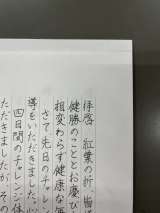 拝啓 紅葉の折、皆
健勝のこととお慶び
相変わらず健康な毎
さて先日のチャレン
導をいただきました。
四日間のチャレンジ体
ただきましたが、その